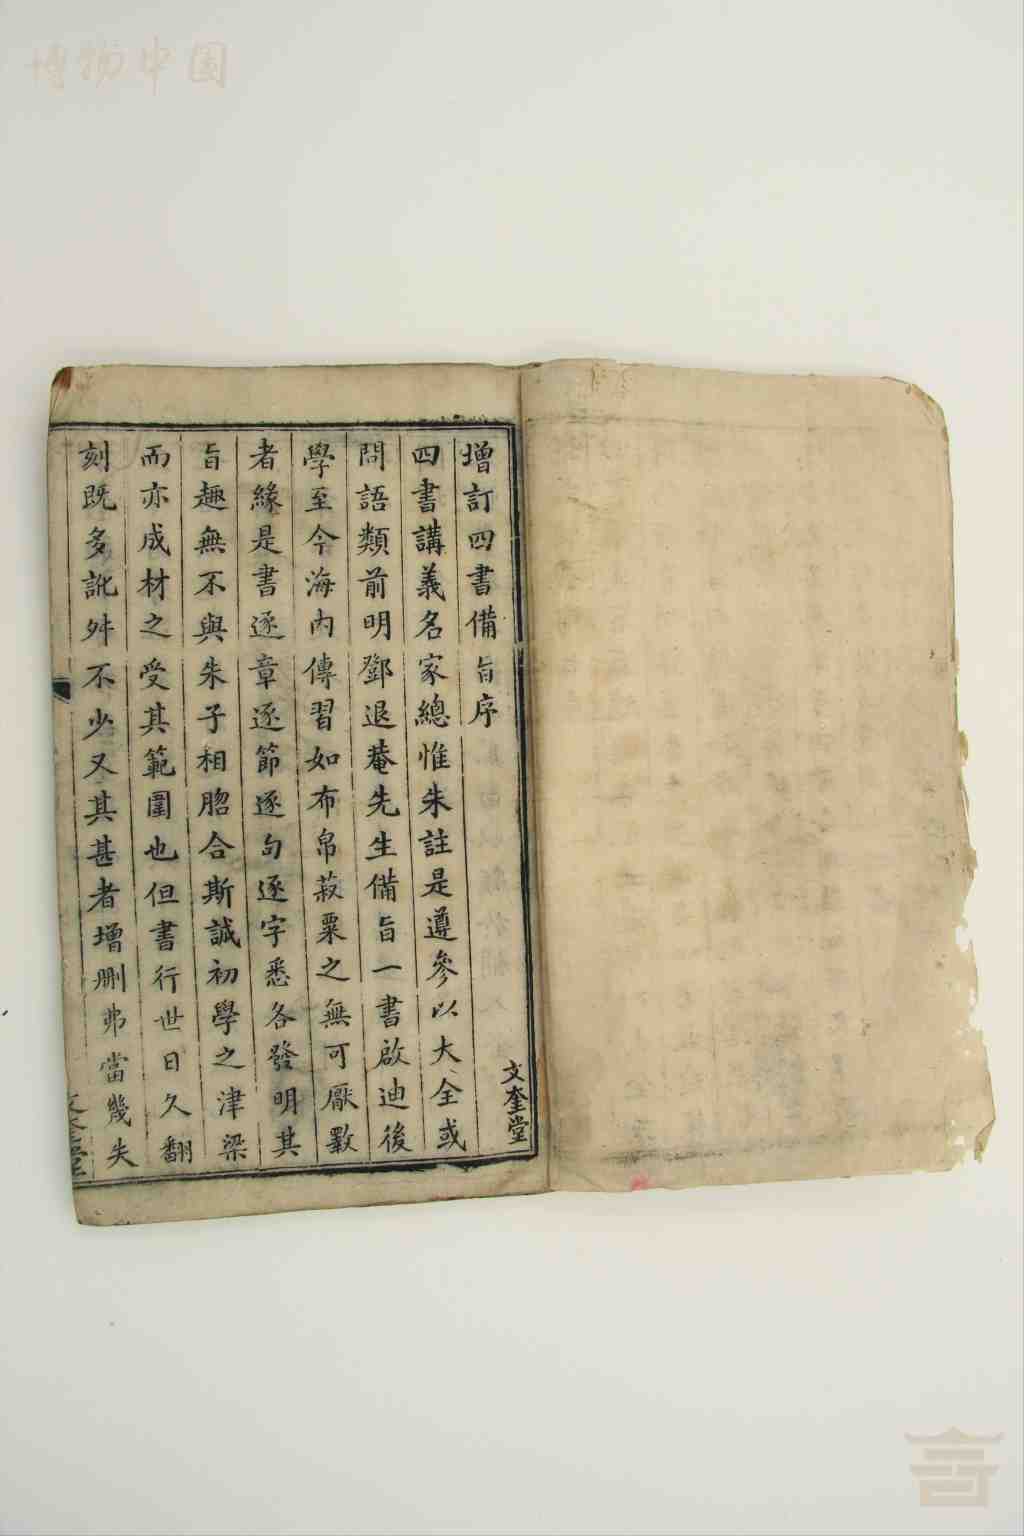 博物中国
增訂四書備旨序
文奎堂
四書講義名家總惟朱註是遵參以大全或
問語類前明鄧退菴先生備旨一書啟迪後
學至今海內傳習如布帛菽粟之無可厭斁
者緣是書逐章逐節逐句逐字悉各發明其
旨趣無不與朱子相脗合斯誠初學之津梁
而亦成材之受其範圍也但書行世日久翻
刻既多訛舛不少又其甚者增刪弗當幾失
文奎堂